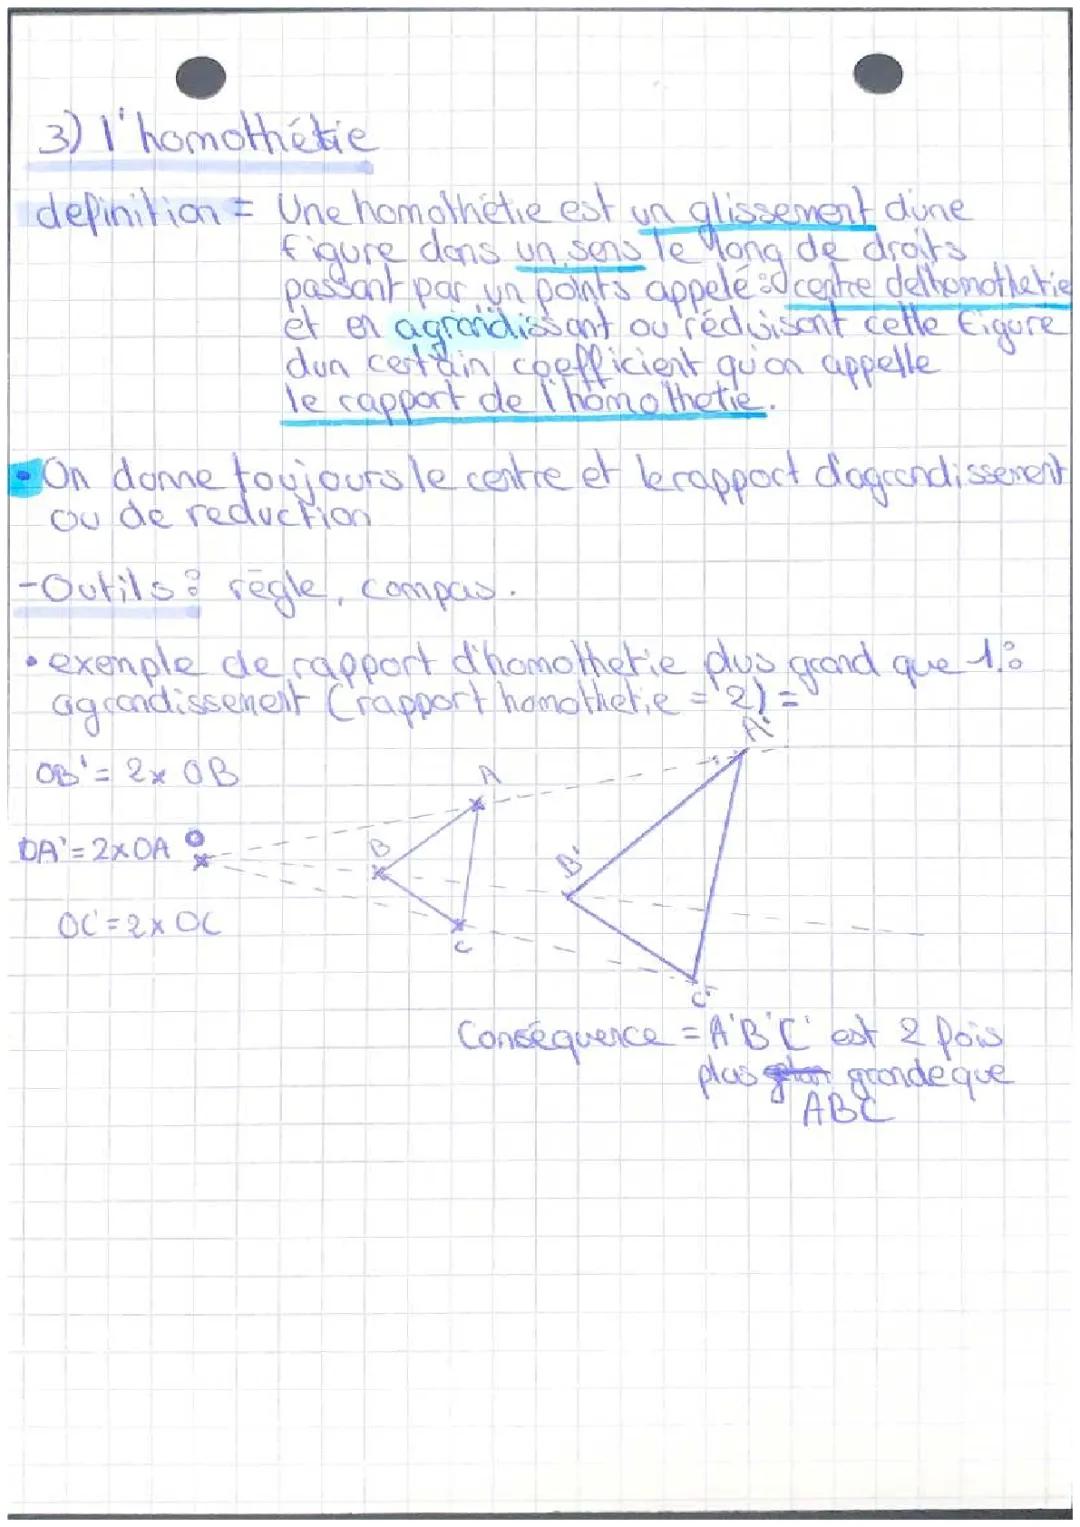 3) l'homothétie
definition = Une homothétie est un glissement d'une
figure dans un sens le long de droits
passant par un points appelé : centre de l'homothetie
et en agrandissant ou réduisant cette figure
d'un certain coefficient qu'on appelle
le rapport de l'homothetie.
• On donne toujours le centre et le rapport d'agrandissement
ou de reduction
- Outils : règle, compas.
• exemple de rapport d'homothetie plus grand que 1 :
agrandissement (rapport homothetie = 2) =
A'
OB' = 2x OB
A
OA' = 2x OA
O
B
B'
OC' = 2x OC
C
C'
Conséquence = A'B'C' est 2 fois
plus grande que
ABC